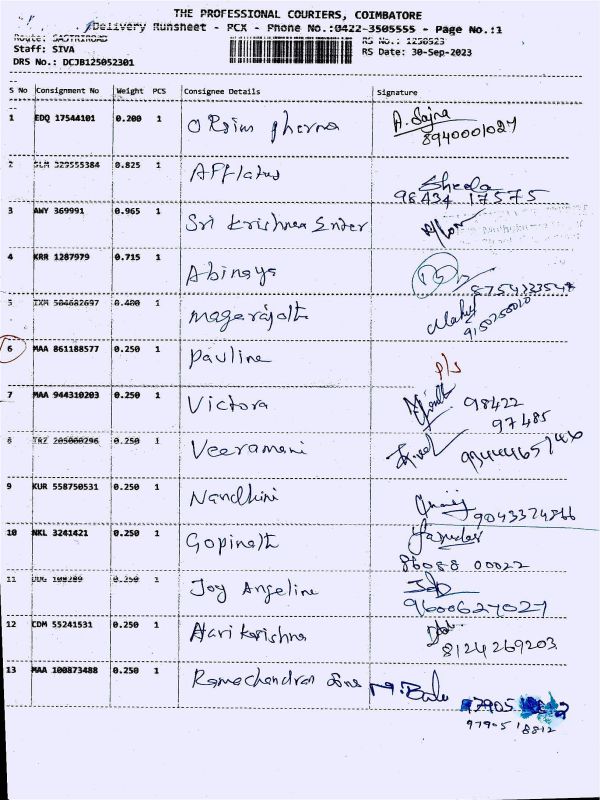 THE PROFESSIONAL COURIERS, COIMBATORE
Delivery Runsheet - PCX - Phone No.:0422-3505555 - Page No.:1
Route: SASTRIROAD
RS No.: 1250523
Staff: SIVA
RS Date: 30-Sep-2023
DRS No.: DCJB125052301
S No Consignment No Weight PCS Consignee Details Signature
1 EDQ 17544101 0.200 1 A. Sajna
8940001027
2 0.825 1 Afflatus Sheela
98434 17575
3 AWY 369991 0.965 1 Sri Krishna Enter
4 KRR 1287979 0.715 1 Abinaya
5 IXM 504682697 0.400 1
6 MAA 861188577 0.250 1 Pauline P/S
7 MAA 944310203 0.250 1 Victora 98422
97485
8 TRZ 205000296 0.250 1 Veeramani
9 KUR 558750531 0.250 1 Nandhini
10 NKL 3241421 0.250 1 Gopinath
86088 00022
11 0.250 1 Joy Angeline
9600627027
12 CDM 55241531 0.250 1 Hari Krishna
8124269203
13 MAA 100873488 0.250 1 Ramachandran M. Balu
97905
97905 18812